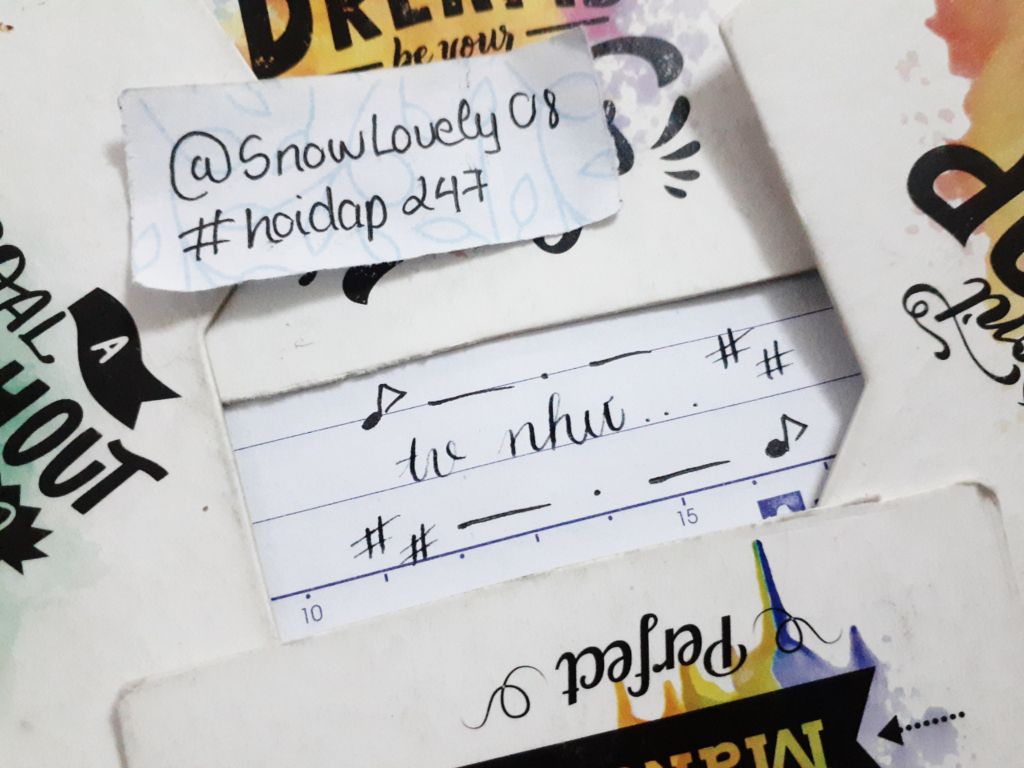 DREAMS
be your
@SnowLovely08
#hoidap247
A
HOUT
♪ — . — # #
tw như...
# # — . — ♪
10
15
Perfect